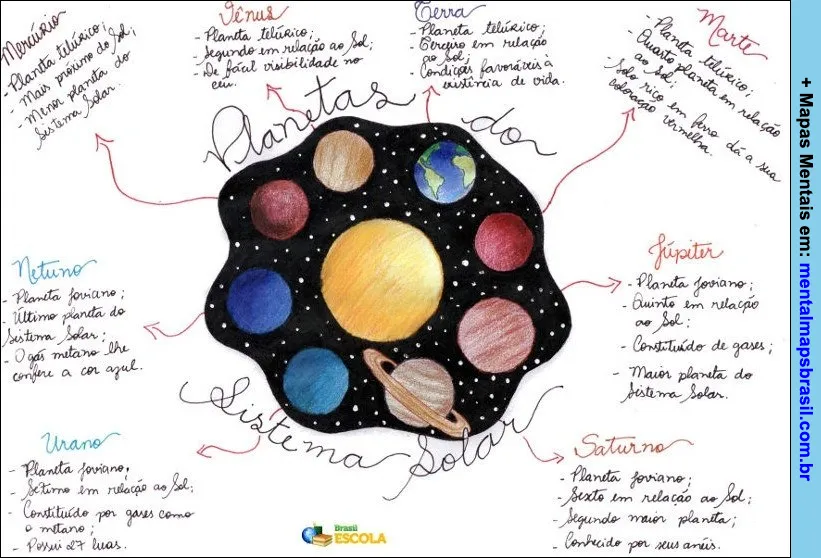 Planetas do
Sistema Solar
Mercúrio
- Planeta telúrico;
- Mais próximo do Sol;
- Menor planeta do
Sistema Solar.
Vênus
- Planeta telúrico;
- Segundo em relação ao Sol;
- De fácil visibilidade no
céu.
Terra
- Planeta telúrico;
- Terceiro em relação
ao Sol;
- Condições favoráveis à
existência de vida.
Marte
- Planeta telúrico;
- Quarto planeta em relação
ao Sol;
- Solo rico em ferro dá a sua
coloração vermelha.
Júpiter
- Planeta joviano;
- Quinto em relação
ao Sol;
- Constituído de gases;
- Maior planeta do
Sistema Solar.
Saturno
- Planeta joviano;
- Sexto em relação ao Sol;
- Segundo maior planeta;
- Conhecido por seus anéis.
Urano
- Planeta joviano,
- Sétimo em relação ao Sol;
- Constituído por gases como
o metano;
- Possui 27 luas.
Netuno
- Planeta joviano;
- Último planeta do
Sistema Solar;
- O gás metano lhe
confere a cor azul.
Brasil
ESCOLA
+ Mapas Mentais em: mentalmapsbrasil.com.br